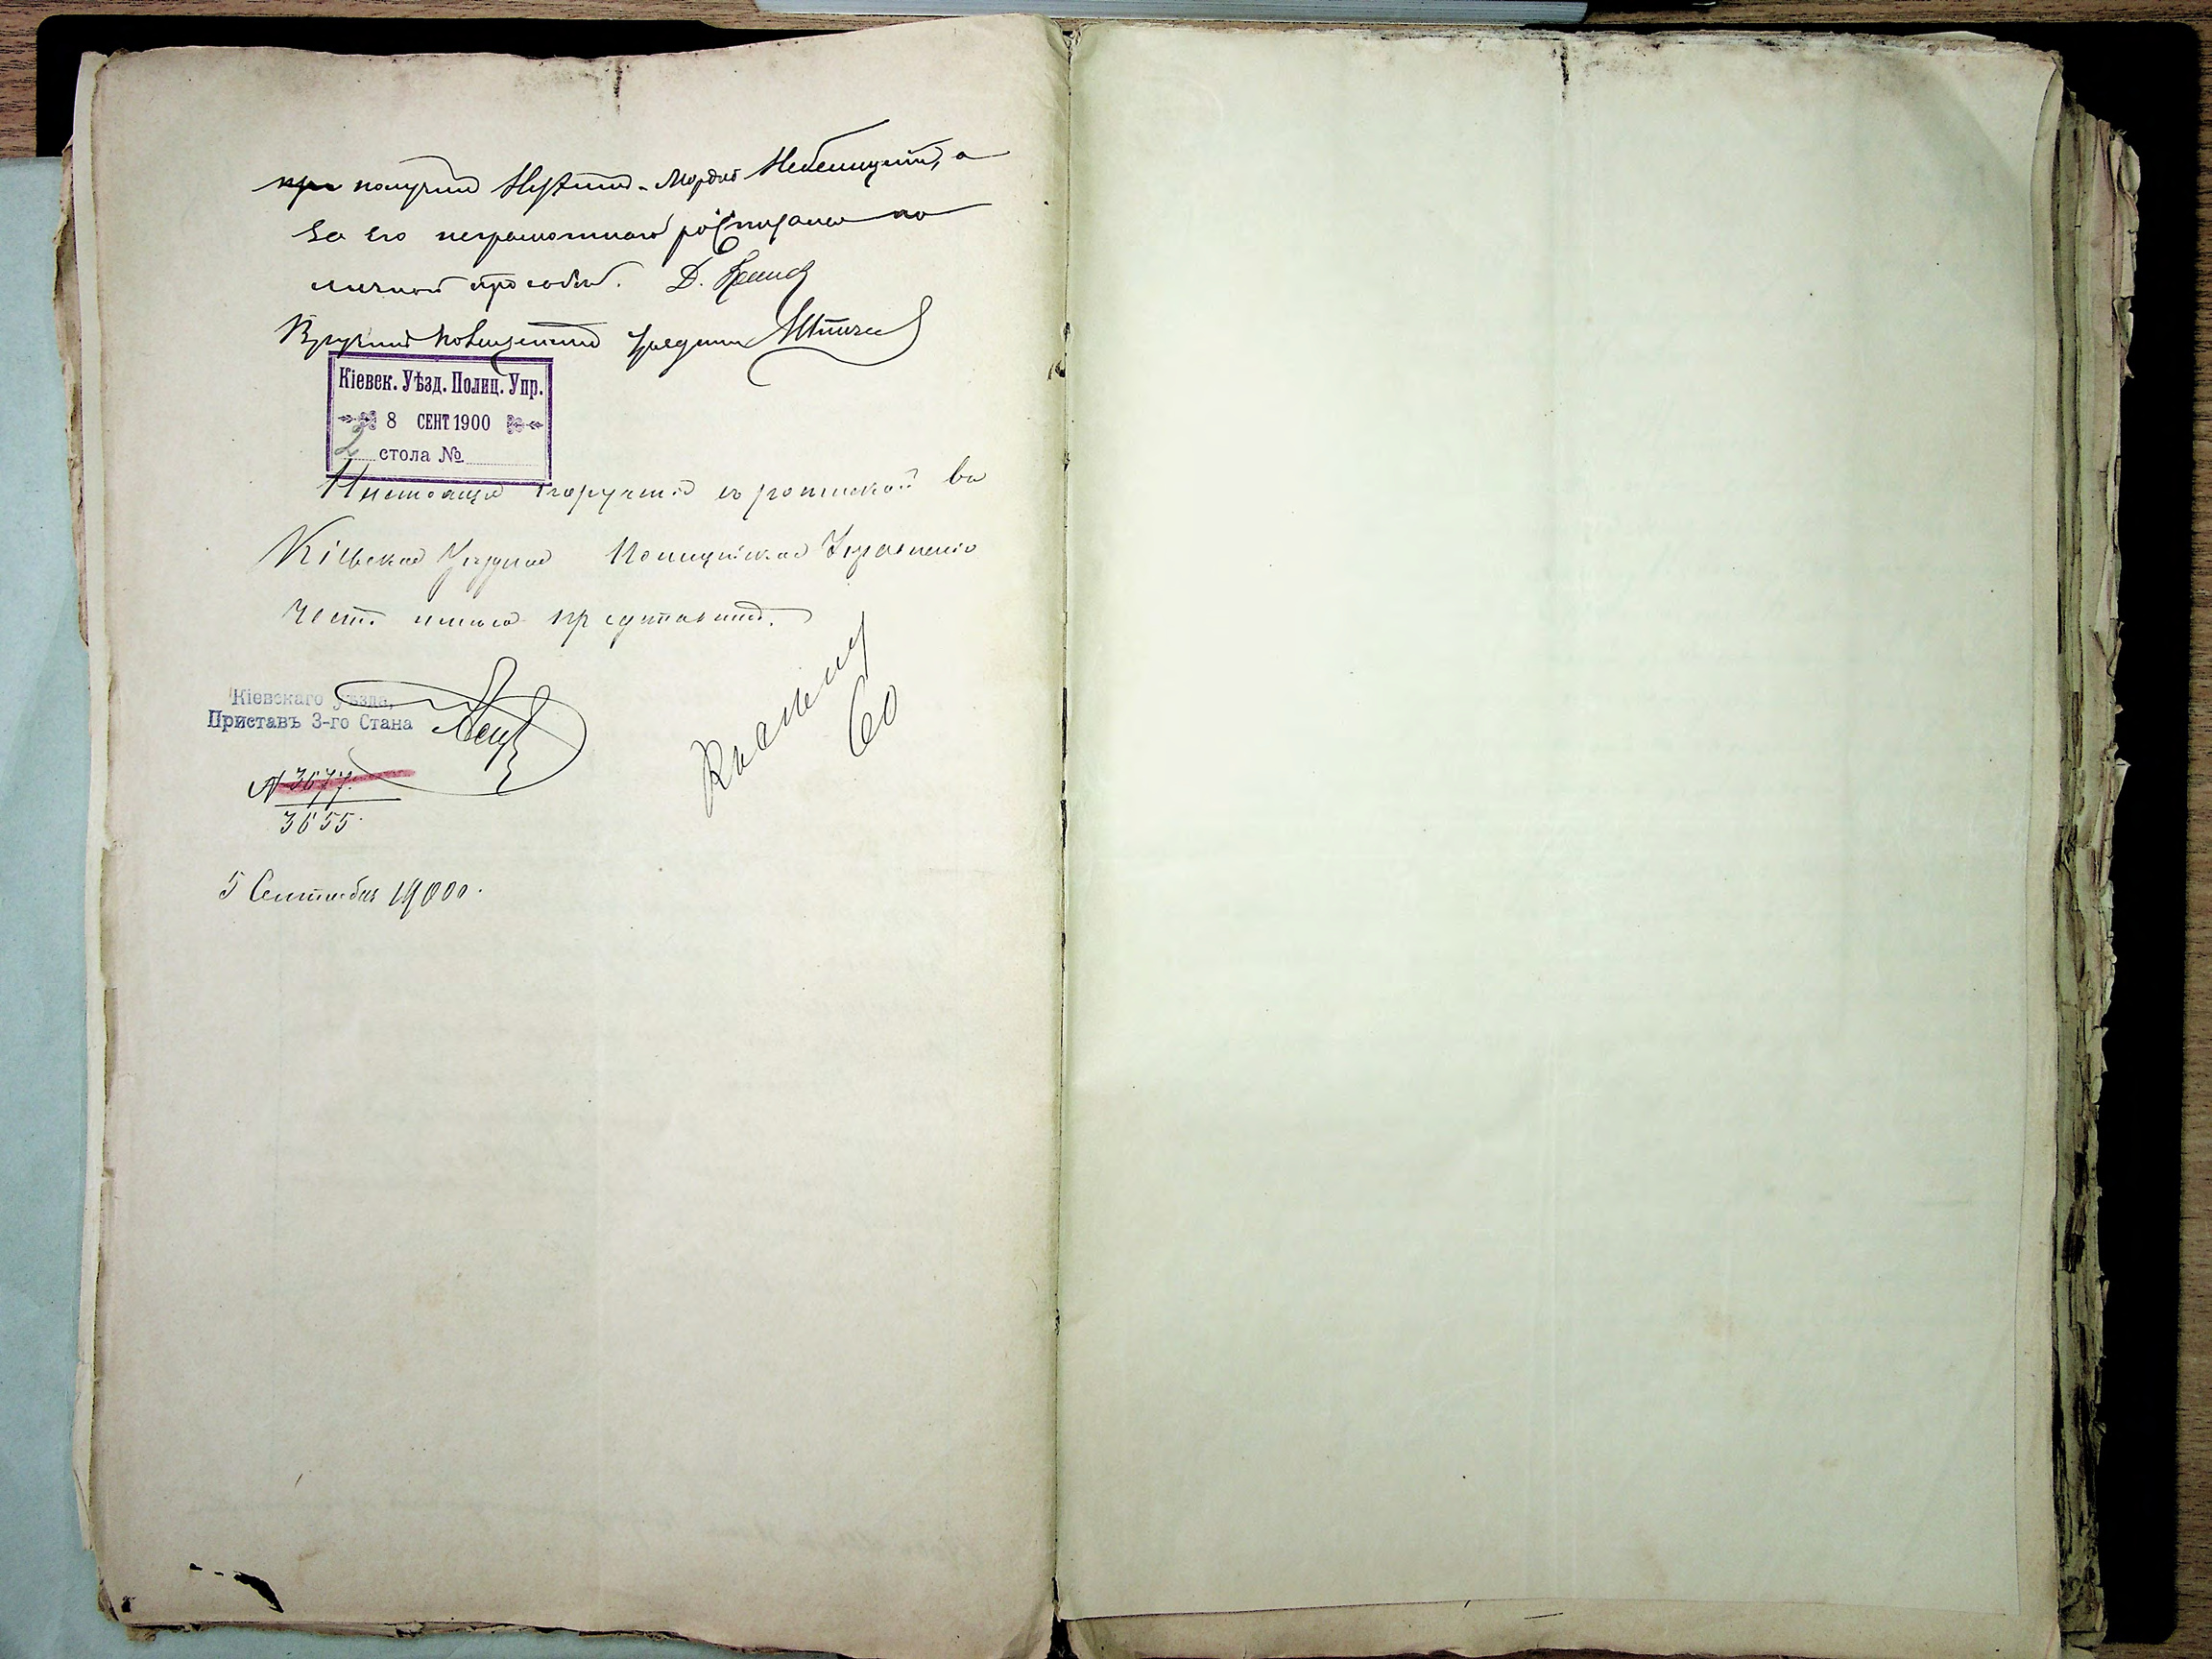 получилъ Мордко Небеницкій, а
за его неграмотнаго росписался по
личной просьбѣ. Д.
Вручилъ Повѣщеніе Урядникъ
Кіевск. Уѣзд. Полиц. Упр.
8 СЕНТ 1900
2 стола №
Настоящее порученіе съ роспиской въ
Кіевское Уѣздное Полицейское Управленіе
честь имѣю представить.
Кіевскаго уѣзда,
Приставъ 3-го Стана
№ 3677
3655
5 Сентября 1900.
60